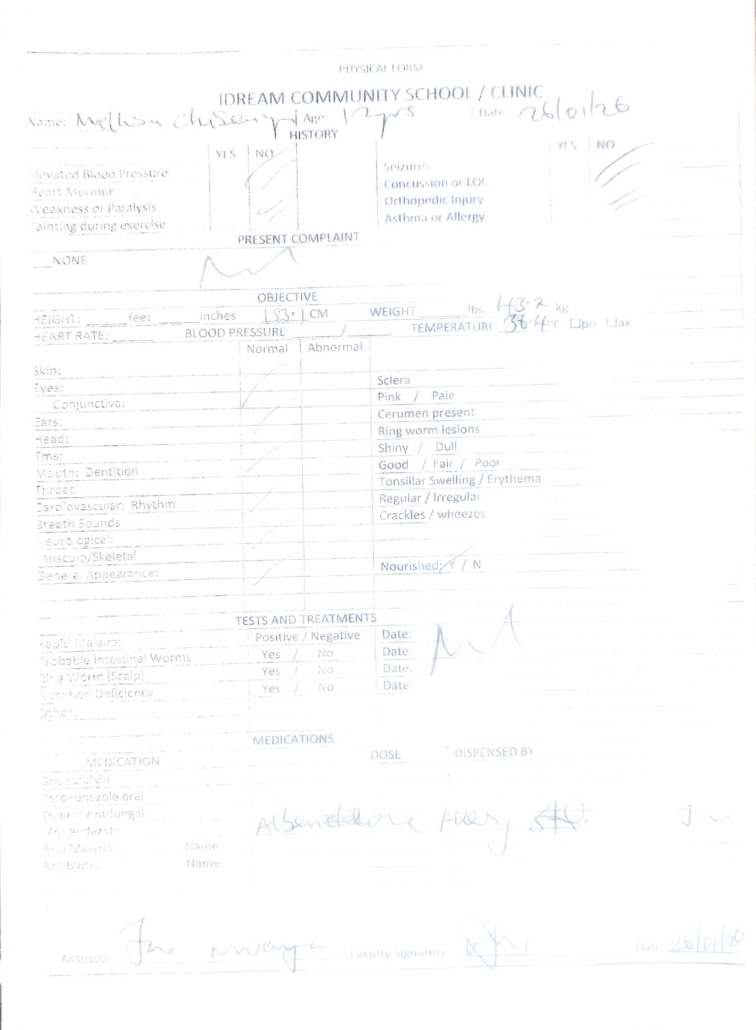 PHYSICAL FORM
IDREAM COMMUNITY SCHOOL / CLINIC
Name: Age: 12yrs Date: 26/01/26
HISTORY
YES NO YES NO
Elevated Blood Pressure Seizures
Heart Murmur Concussion or LOC
Weakness or Paralysis Orthopedic Injury
Fainting during exercise Asthma or Allergy
PRESENT COMPLAINT
NONE
OBJECTIVE
HEIGHT: feet inches 153.1 CM WEIGHT lbs 43.2 kg
HEART RATE: BLOOD PRESSURE: / TEMPERATURE po ax
Normal Abnormal
Skin:
Eyes: Sclera
Conjunctiva: Pink / Pale
Ears: Cerumen present
Head: Ring worm lesions
Tms: Shiny / Dull
Mouth: Dentition Good / Fair / Poor
Throat: Tonsillar Swelling / Erythema
Cardiovascular: Rhythm Regular / Irregular
Breath Sounds Crackles / wheezes
Neurological:
Musculo/Skeletal
General Appearance: Nourished: Y / N
TESTS AND TREATMENTS
Rapid Malaria: Positive / Negative Date:
Probable Intestinal Worms Yes / No Date:
Ring Worm (Scalp) Yes / No Date:
Nutrition Deficiency Yes / No Date:
Other:
MEDICATIONS
MEDICATION DOSE DISPENSED BY
Griseofulvin
Ketokonazole oral
Topical Antifungal
Albendazole
Anti Malarial Name:
Antibiotic Name:
Assessor Faculty Signature Date: 26/01/26